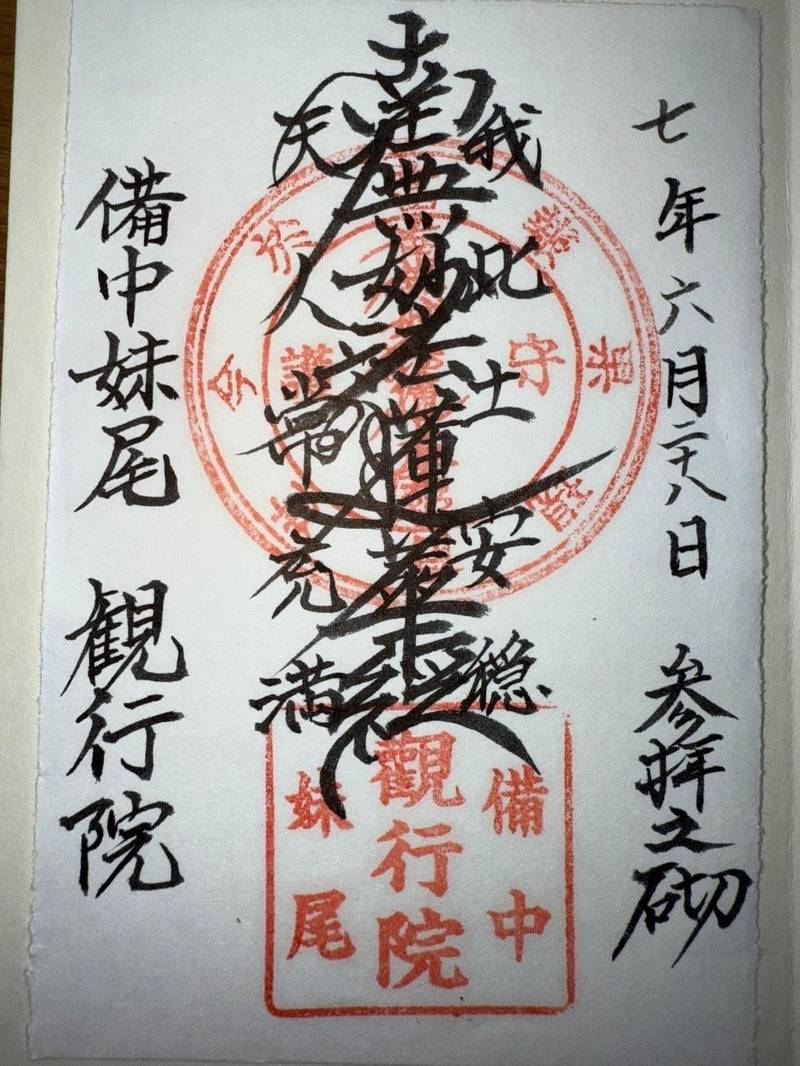 七年六月二十八日 参拝之砌
我此土安穏
南無妙法蓮華経
天人常充満
備中妹尾 観行院
備中
觀行院
妹尾